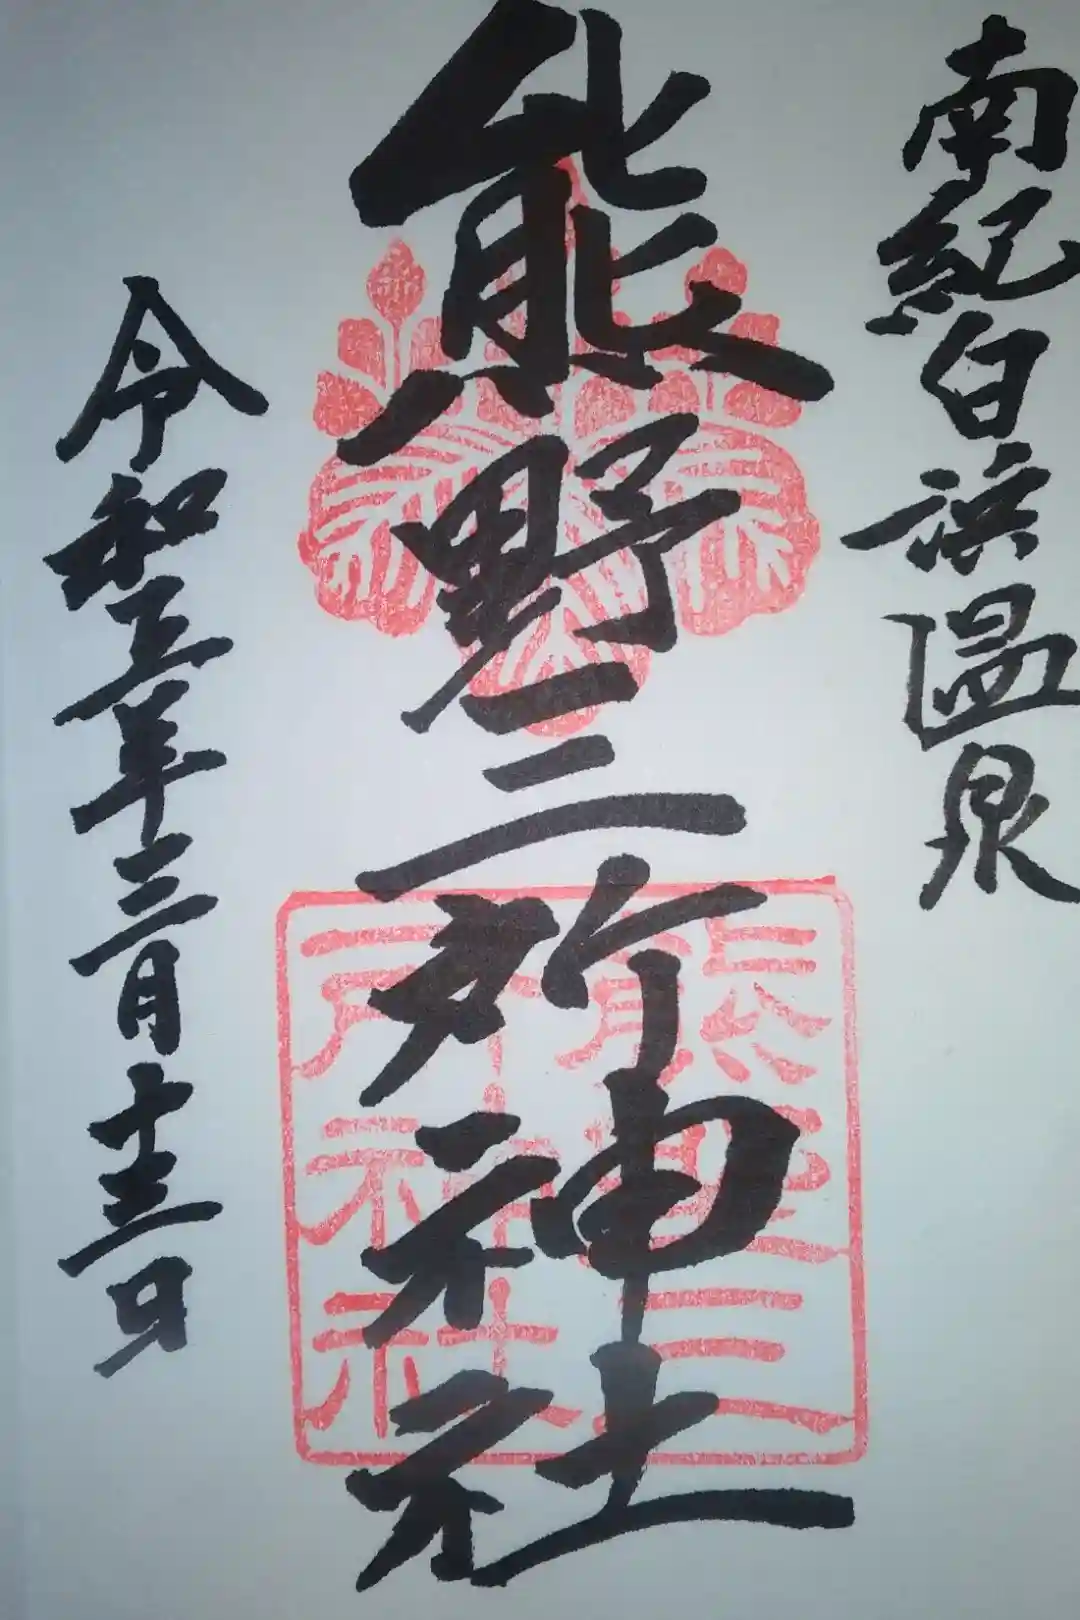 南紀白浜温泉
熊野三所神社
熊野三
所神社
令和五年三月十三日